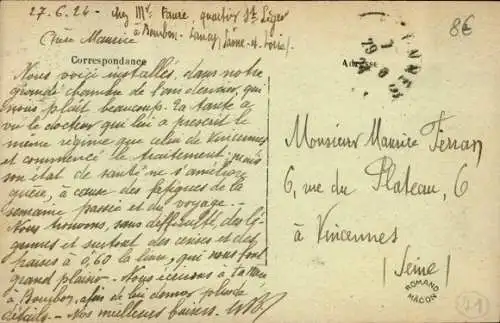 27.6.24 - chez Mr. Faure, quartier St Léger
à Bourbon-Lancy (Saône-et-Loire)
Cher Maurice
Correspondance
Nous voici installés, dans notre
grande chambre de l'an dernier, qui
nous plait beaucoup. Ta tante a
vu le docteur qui lui a prescrit le
même régime que celui de Vincennes
et commencé le traitement; mais
son état de santé ne s'améliore
guère, à cause des fatigues de la
semaine passée et du voyage.
Nous trouvons, sans difficulté, des lé-
gumes et surtout des cerises et des
fraises à 0,60 la livre, qui nous font
grand plaisir. - Nous écrirons à
à Bourbon, afin de lui donner plus de
détails. - Nos meilleurs baisers.
Adresse
Monsieur Maurice Ferran
6, rue du Plateau, 6
à Vincennes
(Seine)
ROMAND
MACON
8€
71